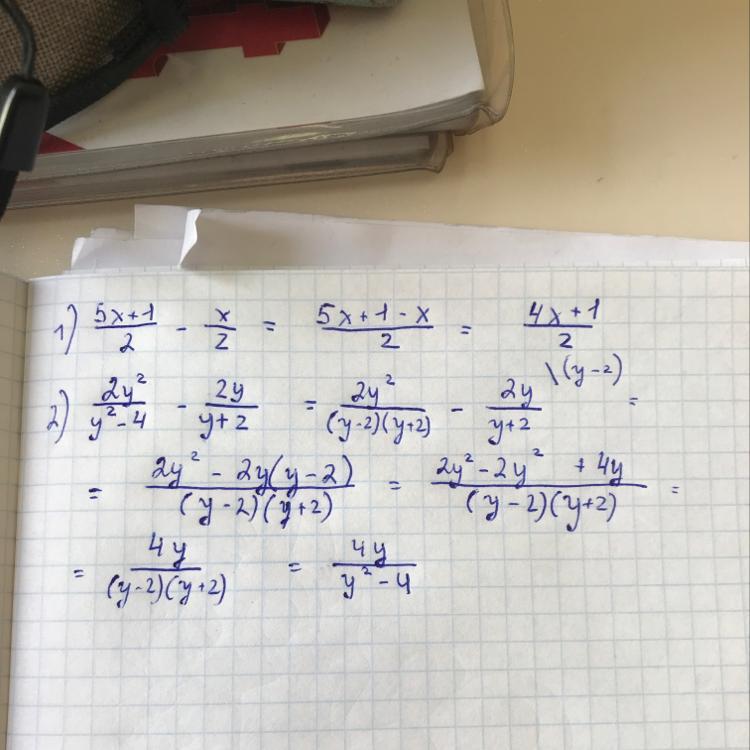 1) (5x+1)/2 - x/2 = (5x+1-x)/2 = (4x+1)/2
2) 2y²/(y²-4) - 2y/(y+2) = 2y²/((y-2)(y+2)) - 2y/(y+2) \(y-2) =
= (2y² - 2y(y-2))/((y-2)(y+2)) = (2y² - 2y² + 4y)/((y-2)(y+2)) =
= 4y/((y-2)(y+2)) = 4y/(y²-4)